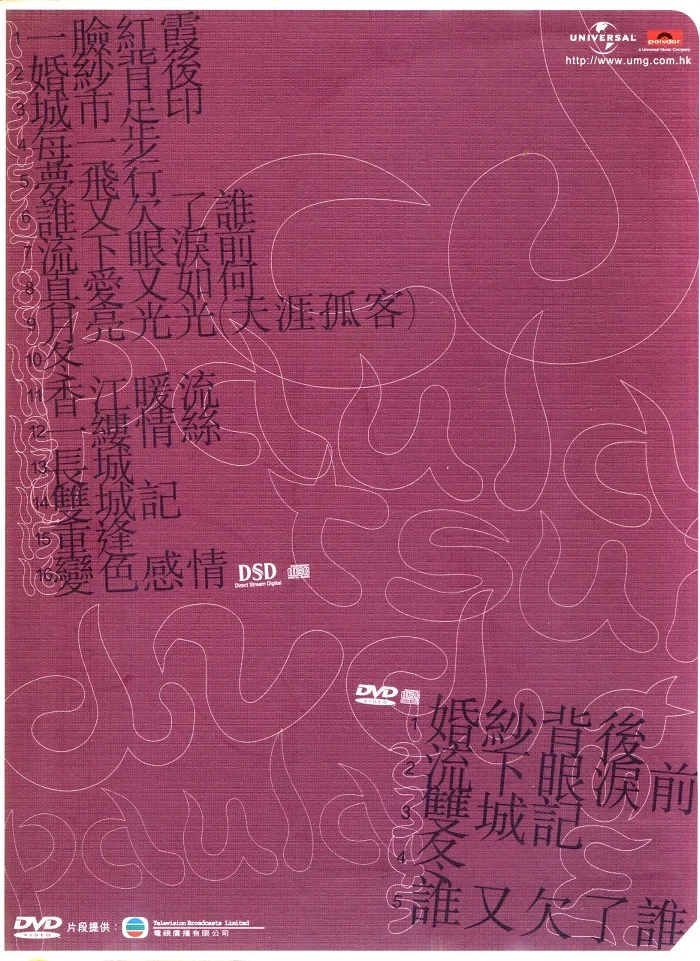 UNIVERSAL
polydor
a Universal Music Company
http://www.umg.com.hk
1 一臉紅霞
2 婚紗背後
3 城市足印
4 每一步
5 夢飛行
6 誰又欠了誰
7 流下眼淚前
8 真愛又如何
9 月亮光光(天涯孤客)
10 冬
11 香江暖流
12 一縷情絲
13 長城
14 雙城記
15 重逢
16 變色感情
DSD
Direct Stream Digital
paula
tsui
DVD
VIDEO
1 婚紗背後
2 流下眼淚前
3 雙城記
4 冬
5 誰又欠了誰
paula
DVD
VIDEO
片段提供：
Television Broadcasts Limited
電視廣播有限公司